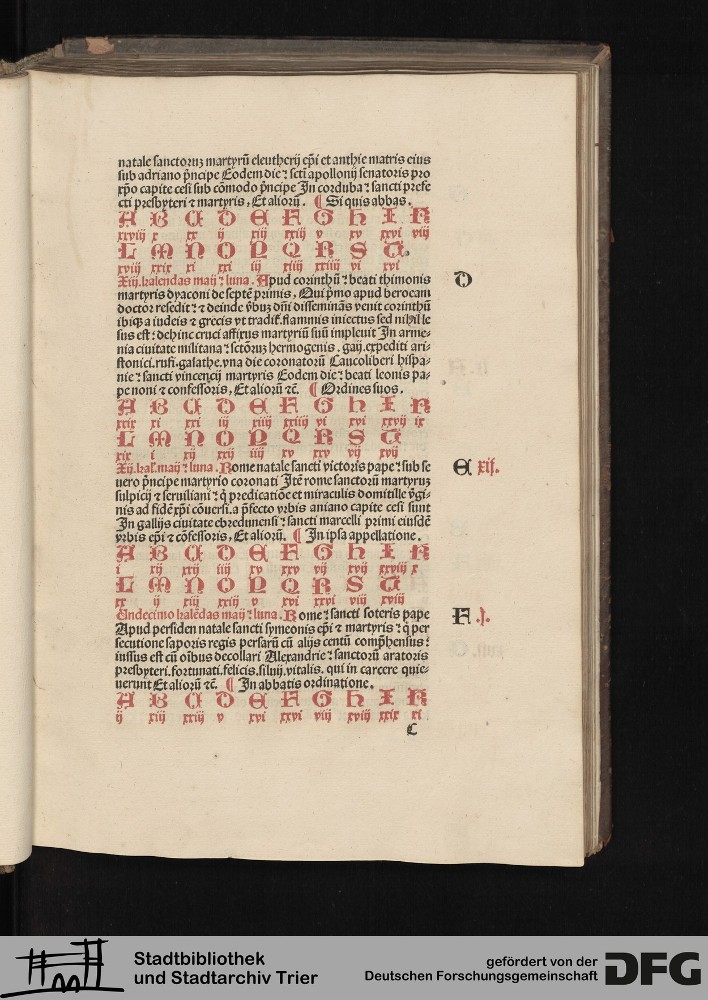 natale sanctoruȝ martyrū eleutherij ep̄i et anthie matris eius
sub adriano p̄ncipe Eodem die ⁊ scti apollonij senatoris pro
xp̄o capite cesi sub cōmodo p̄ncipe In corduba ⁊ sancti prefe
cti presbyteri ⁊ martyris, Et aliorū. ¶ Si quis abbas.
A B C D E F G H I K
xxviij x xx ij xiij xxiij v xv xxvi viij
L M N O P Q R S T
xviij xxix xi xxi iij xiiij xxiiij vi xvi
Xiij. kalendas maij ⁊ luna. Apud corinthū ⁊ beati thimonis
D
martyris dyaconi de septē primis, Qui p̄mo apud beroeam
doctor resedit ⁊ ⁊ deinde v̄buȝ dn̄i disseminās venit corinthū
ibiqȝ a iudeis ⁊ grecis vt tradit̄ flammis iniectus sed nihil le
sus est ⁊ dehinc cruci affixus martyriū suū impleuit In arme-
nia ciuitate militana ⁊ sctōruȝ hermogenis. gaij. expediti ari-
stonici. rufi. galathe. vna die coronatorū Caucoliberi hispa-
nie ⁊ sancti vincencij martyris Eodem die ⁊ beati leonis pa-
pe noni ⁊ confessoris, Et aliorū ⁊c̄. ¶ Ordines suos.
A B C D E F G H I K
xxix xi xxi iij xiiij xxiiij vi xvi xxvij ix
L M N O P Q R S T
xix i xij xxij iiij xv xxv vij xvij
Xij. kal̄. maij ⁊ luna. Rome natale sancti victoris pape ⁊ sub se
E xij.
uero p̄ncipe martyrio coronati Itē rome sanctorū martyruȝ
sulpicij ⁊ seruiliani ⁊ q̄ predicatiōe et miraculis domitille v̄gi-
nis ad fidē xp̄i cōuersi. a p̄fecto vrbis aniano capite cesi sunt
In gallijs ciuitate ebredunensi ⁊ sancti marcelli primi eiusdē
vrbis ep̄i ⁊ cōfessoris, Et aliorū. ¶ In ipsa appellatione.
A B C D E F G H I K
i xij xxij iiij xv xxv vij xvij xxviij x
L M N O P Q R S T
xx ij xiij xxiij v xvi xxvi viij xviij
Undecimo kalēdas maij ⁊ luna. Rome ⁊ sancti soteris pape
F .I.
Apud persiden natale sancti symeonis ep̄i ⁊ martyris ⁊ q̄ per
secutione saporis regis persarū cū alijs centū comp̄hensus ⁊
iussus est cū oībus decollari Alexandrie ⁊ sanctorū aratoris
presbyteri. fortunati. felicis. siluij. vitalis. qui in carcere quie-
uerunt Et aliorū ⁊c̄. ¶ In abbatis ordinatione.
A B C D E F G H I K
ij xiij xxiij v xvi xxvi viij xviij xxix xi
C
Stadtbibliothek
und Stadtarchiv Trier
gefördert von der
Deutschen Forschungsgemeinschaft
DFG